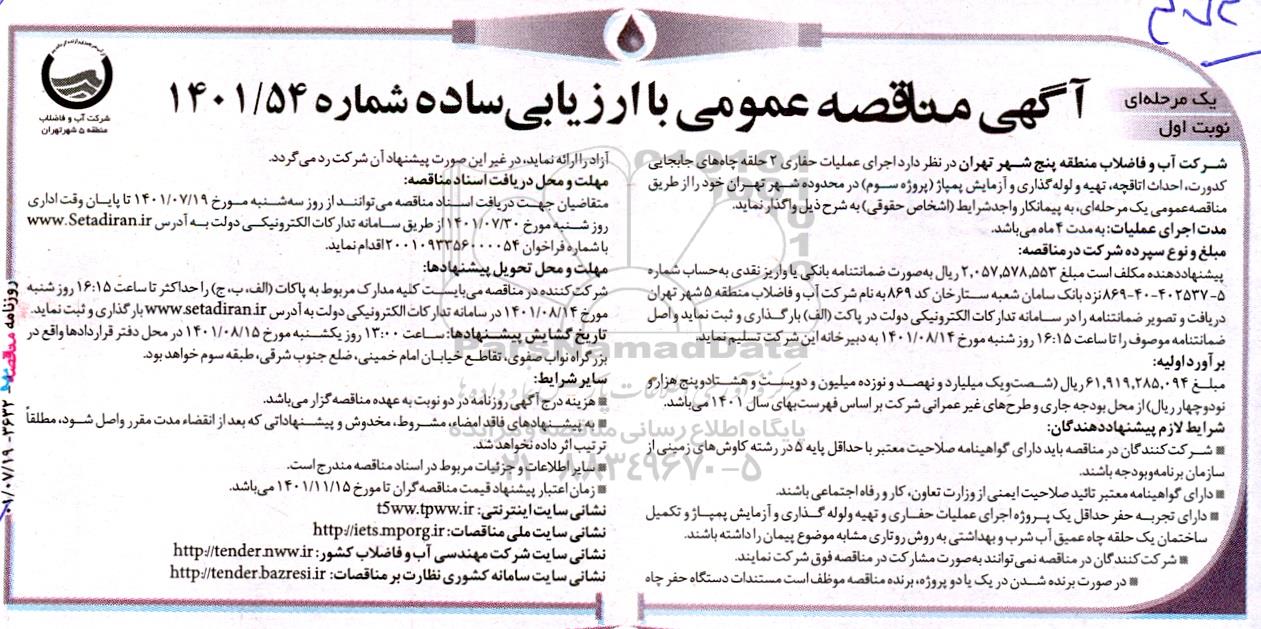 یک مرحله‌ای
نوبت اول
آگهی مناقصه عمومی با ارزیابی ساده شماره ۱۴۰۱/۵۴
شرکت آب و فاضلاب
منطقه ۵ شهر تهران
شرکت آب و فاضلاب منطقه پنج شهر تهران در نظر دارد اجرای عملیات حفاری ۲ حلقه چاه‌های جابجایی
کدورت، احداث اتاقچه، تهیه و لوله‌گذاری و آزمایش پمپاژ (پروژه سوم) در محدوده شهر تهران خود را از طریق
مناقصه عمومی یک مرحله‌ای، به پیمانکار واجد شرایط (اشخاص حقوقی) به شرح ذیل واگذار نماید.
مدت اجرای عملیات: به مدت ۴ ماه می‌باشد.
مبلغ و نوع سپرده شرکت در مناقصه:
پیشنهاددهنده مکلف است مبلغ ۲,۰۵۷,۵۷۸,۵۵۳ ریال به‌صورت ضمانتنامه بانکی یا واریز نقدی به‌حساب شماره
۵-۴۰۲۵۳۷-۴۰-۸۶۹ نزد بانک سامان شعبه ستارخان کد ۸۶۹ به نام شرکت آب و فاضلاب منطقه ۵ شهر تهران
دریافت و تصویر ضمانتنامه را در سامانه تدارکات الکترونیکی دولت در پاکت (الف) بارگذاری و ثبت نماید و اصل
ضمانتنامه موصوف را تا ساعت ۱۶:۱۵ روز شنبه مورخ ۱۴۰۱/۰۸/۱۴ به دبیرخانه این شرکت تسلیم نماید.
برآورد اولیه:
مبلغ ۶۱,۹۱۹,۲۸۵,۰۹۴ ریال (شصت‌ویک میلیارد و نهصد و نوزده میلیون و دویست و هشتادوپنج هزار و
نودوچهار ریال) از محل بودجه جاری و طرح‌های غیر عمرانی شرکت بر اساس فهرست‌بهای سال ۱۴۰۱ می‌باشد.
شرایط لازم پیشنهاددهندگان:
■ شرکت‌کنندگان در مناقصه باید دارای گواهینامه صلاحیت معتبر با حداقل پایه ۵ در رشته کاوش‌های زمینی از
سازمان برنامه‌وبودجه باشند.
■ دارای گواهینامه معتبر تائید صلاحیت ایمنی از وزارت تعاون، کار و رفاه اجتماعی باشند.
■ دارای تجربه حفر حداقل یک پروژه اجرای عملیات حفاری و تهیه ولوله گذاری و آزمایش پمپاژ و تکمیل
ساختمان یک حلقه چاه عمیق آب شرب و بهداشتی به روش روتاری مشابه موضوع پیمان را داشته باشند.
■ شرکت‌کنندگان در مناقصه نمی‌توانند به‌صورت مشارکت در مناقصه فوق شرکت نمایند.
■ در صورت برنده شدن در یک یا دو پروژه، برنده مناقصه موظف است مستندات دستگاه حفر چاه
آزاد را ارائه نماید، در غیر این صورت پیشنهاد آن شرکت رد می‌گردد.
مهلت و محل دریافت اسناد مناقصه:
متقاضیان جهت دریافت اسناد مناقصه می‌توانند از روز سه‌شنبه مورخ ۱۴۰۱/۰۷/۱۹ تا پایان وقت اداری
روز شنبه مورخ ۱۴۰۱/۰۷/۳۰ از طریق سامانه تدارکات الکترونیکی دولت به آدرس www.Setadiran.ir
با شماره فراخوان ۲۰۰۱۰۹۳۳۵۶۰۰۰۰۵۴ اقدام نماید.
مهلت و محل تحویل پیشنهادها:
شرکت‌کننده در مناقصه می‌بایست کلیه مدارک مربوط به پاکات (الف، ب، ج) را حداکثر تا ساعت ۱۶:۱۵ روز شنبه
مورخ ۱۴۰۱/۰۸/۱۴ در سامانه تدارکات الکترونیکی دولت به آدرس www.setadiran.ir بارگذاری و ثبت نماید.
تاریخ گشایش پیشنهادها: ساعت ۱۳:۰۰ روز یکشنبه مورخ ۱۴۰۱/۰۸/۱۵ در محل دفتر قراردادها واقع در
بزرگراه نواب صفوی، تقاطع خیابان امام خمینی، ضلع جنوب شرقی، طبقه سوم خواهد بود.
سایر شرایط:
■ هزینه درج آگهی روزنامه در دو نوبت به عهده مناقصه‌گزار می‌باشد.
■ به پیشنهادهای فاقد امضاء، مشروط، مخدوش و پیشنهاداتی که بعد از انقضاء مدت مقرر واصل شود، مطلقاً
ترتیب اثر داده نخواهد شد.
■ سایر اطلاعات و جزئیات مربوط در اسناد مناقصه مندرج است.
■ زمان اعتبار پیشنهاد قیمت مناقصه‌گران تا مورخ ۱۴۰۱/۱۱/۱۵ می‌باشد.
نشانی سایت اینترنتی: t5ww.tpww.ir
نشانی سایت ملی مناقصات: http://iets.mporg.ir
نشانی سایت شرکت مهندسی آب و فاضلاب کشور: http://tender.nww.ir
نشانی سایت سامانه کشوری نظارت بر مناقصات: http://tender.bazresi.ir
روزنامه مناقصه
۳۶۳۲ - ۰۱/۰۷/۱۹
ParsNamadData
پایگاه اطلاع رسانی مناقصه و مزایده
۰۲۱-۸۸۳۴۹۶۷۰-۵